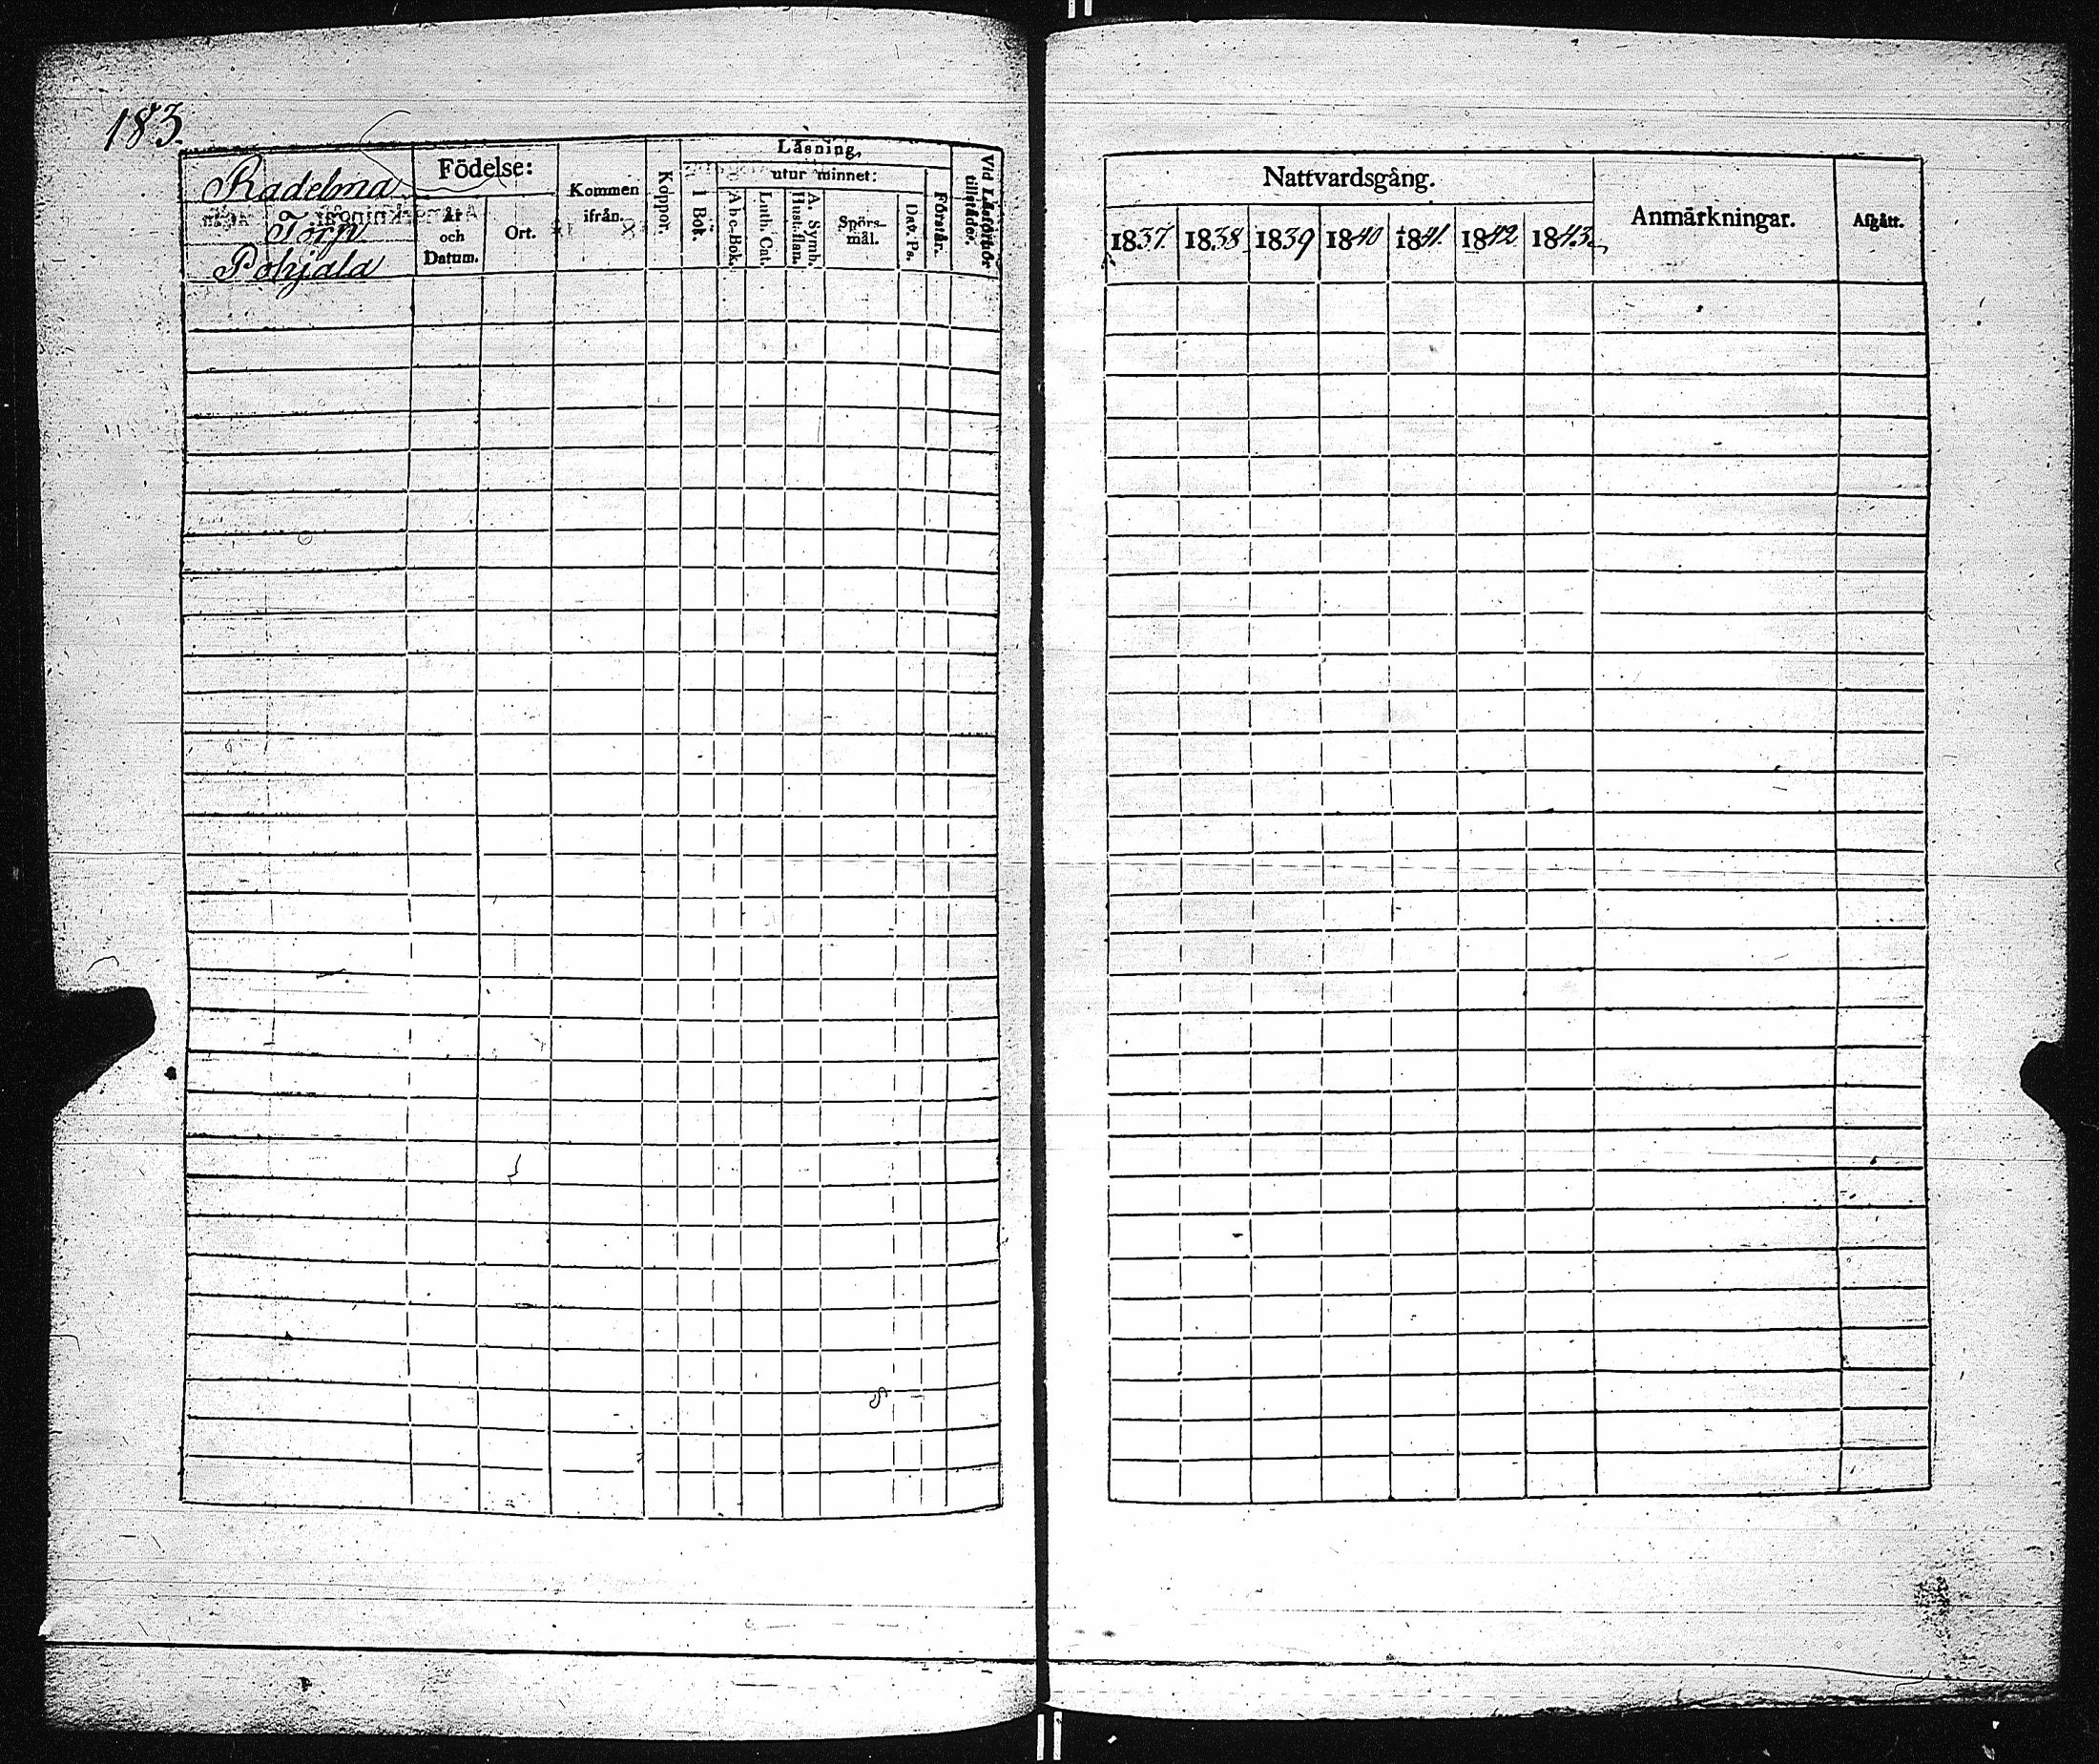 183.
Radelma
Torp
Pohjala
Födelse:
År
och
Datum.
Ort.
Kommen
ifrån.
Koppor.
Läsning,
I Bok.
utur minnet:
Abc-Bok.
Luth. Cat.
A. Symb.
Hust.flan.
Spörs-
mål.
Dav. Ps.
Förstår.
Vid Läsförhör
tillstädes.
Nattvardsgång.
1837. 1838. 1839 1840 1841. 1842 1843.
Anmärkningar.
Afgått.